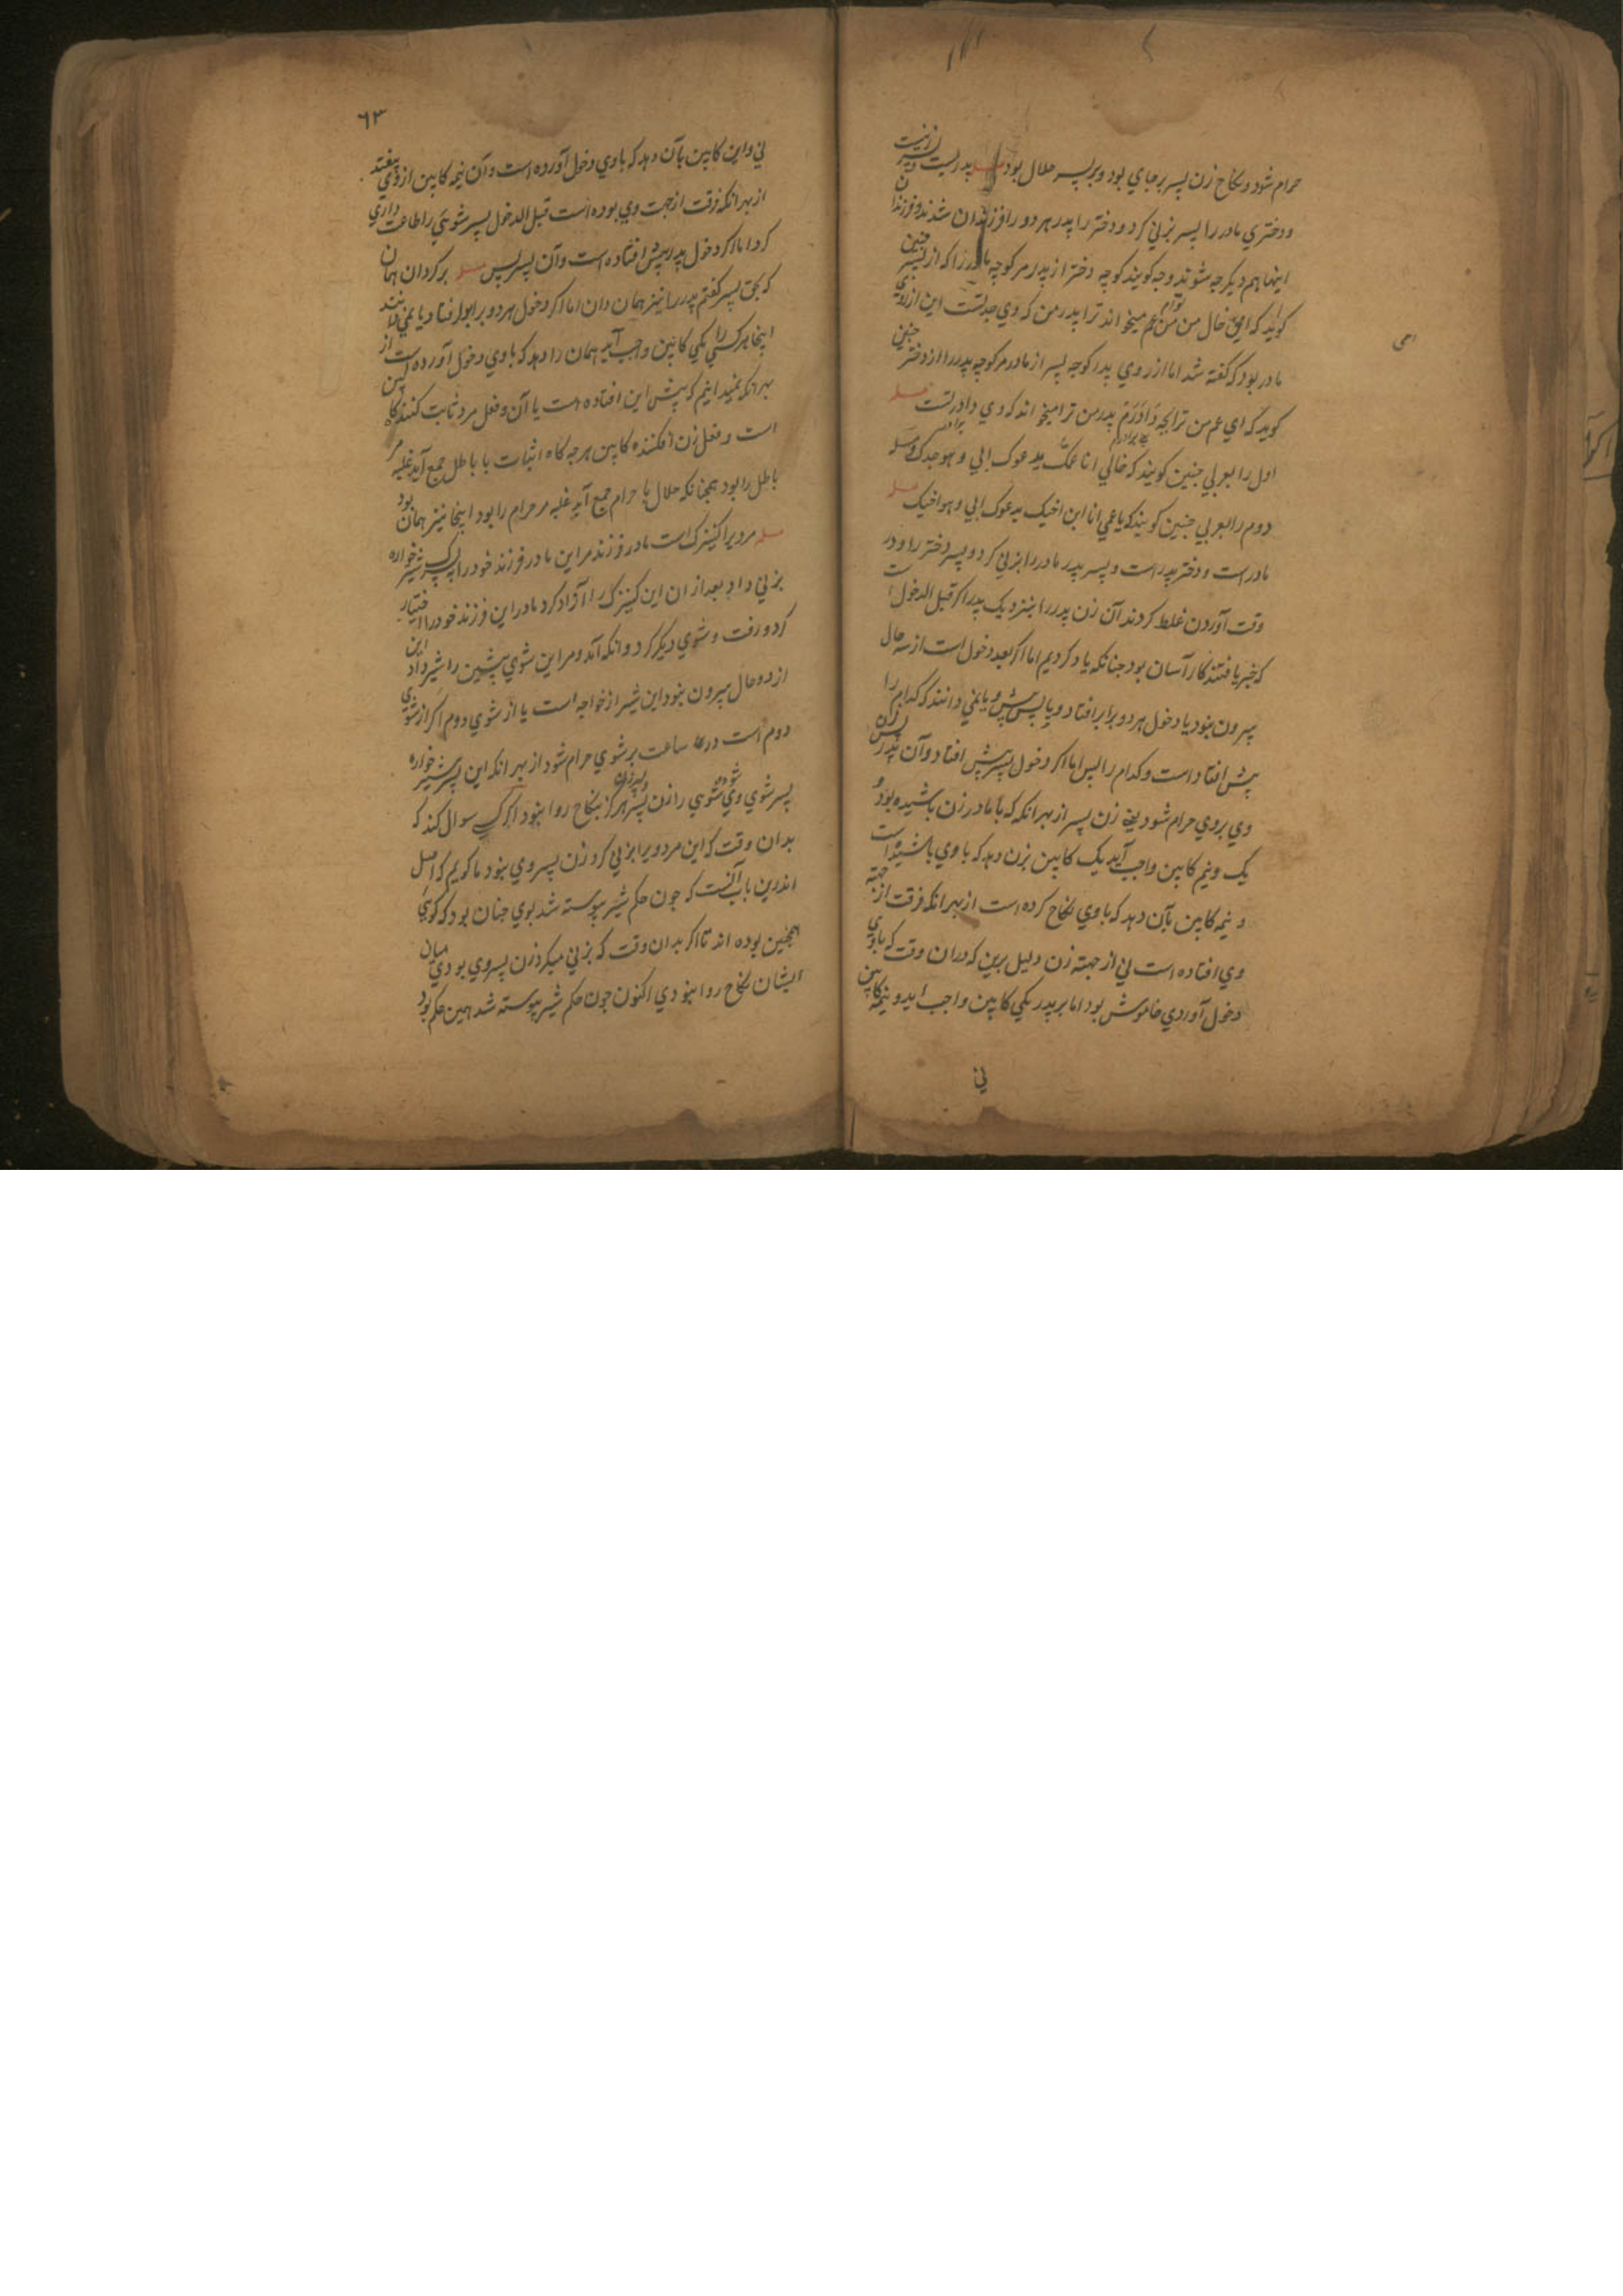 حرام شود و نکاح زن پسر برجاي بود و بر پسر حلال بود مسله پدر است و پسر زنیست
و دختري مادر را پسر بزني کرد و دختر را پدر هر دو را فرزندان شدند و فرزندان
اینها هم دیکر چه شوند و چه کویند کوچه دختر از پدر مر کوچه مادر را که از پسر چنین
کوید که اي خال من من عم توام میخواند ترا پدر من که وي جد تست این از روي
مادر بود که کفته شد اما از روي پدر کوچه پسر از مادر مر کوچه پدر را از دختر چنین
کوید که اي عم من ترا بچه دادرم پدر من ترا میخواند که وي دادر تست مسله
اول را بعربي چنین کویند که خالي انا عمک یدعوک ابي و هو جدک مسله
دوم را بعربي چنین کویند که یا عمي انا ابن اخیک یدعوک ابي و هو اخیک مسله
مادر است و دختر پدر است و پسر پدر مادر را بزني کرد و پسر دختر را و در
وقت آوردن غلط کردند آن زن پدر را بنزدیک پدر اکر قبل الدخول است
که خبر یافتند کار آسان بود چنانکه یاد کردیم اما اکر بعد دخول است از سه حال
بیرون نبود یا دخول هر دو برابر افتاد و یا پس و پیش یا نمي دانند که کدام را
پیش افتاد است و کدام را پس اما اکر دخول پسر پیش افتاد و آن پدر پس زن
وي بروي حرام شود یعني زن پسر از بهر آنکه که با مادر زن باشیده بود و
یک و نیم کابین واجب آید یک کابین بزن دهد که با وي باشیده است
و نیمه کابین بآن دهد که با وي نکاح کرده است از بهر آنکه فرقت از جهته
وي افتاده است ني از جهته زن دلیل برین که در ان وقت که با وي
دخول آوردي خاموش بود اما بر پدر یکي کابین واجب اید و نیمه کابین
ني
امي
٦٣
ني و این کابین بآن دهد که با وي دخول آورده است و آن نیمه کابین از وي بیفتد
از بهر آنکه فرقت از جهت وي بوده است قبل الدخول پسر شوئي را طاعت داري
کرد اما اکر دخول پدر پیش افتاده است و آن پسر پس مسله بر کردان همان
که بحق پسر کفتم پدر را نیز همان دان اما اکر دخول هر دو برابر افتاد و یا نمي دانند
اینجا هر کسي را یکي کابین واجب آید همان را دهد که با وي دخول آورده است از
بهر آنکه نمیدانیم که پیش این افتاده است یا آن و فعل مرد ثابت کننده کابین
است و فعل زن افکننده کابین هر چه کاه اثبات با باطل جمع آید غلبه مر
باطل را بود همچنانکه حلال با حرام جمع آید غلبه مر حرام را بود اینجا نیز همان بود
مسله مردیرا کنیزک است مادر فرزند مر این مادر فرزند خود را بیک پسر شیر خواره
بزني داد بعد از ان این کنیزک را آزاد کرد مادر این فرزند خود را اختیار
کرد و رفت و شوي دیکر کرد وانکه آمد و مر این شوي پیشین را شیر داد این
از دو حال بیرون نبود این شیر از خواجه است یا از شوي دوم اکر از شوي
دوم است در ساعت بر شوي حرام شود از بهر انکه این پسر شیر خواره
پسر شوي وي شود و شوي را زن پسر هرکز بنکاح روا نبود اکر کسي سوال کند که
بدان وقت که این مرد ویرا بزني کرد زن پسر وي نبود ما کویم که اصل
اندرین باب آنست که چون حکم شیر پیوسته شد بوي چنان بود که کویي
همچنین بوده اند تا اکر بدان وقت که بزني میکرد زن پسر وي بودي میان
ایشان نکاح روا نبودي اکنون چون حکم شیر پیوسته شد همین حکم بود